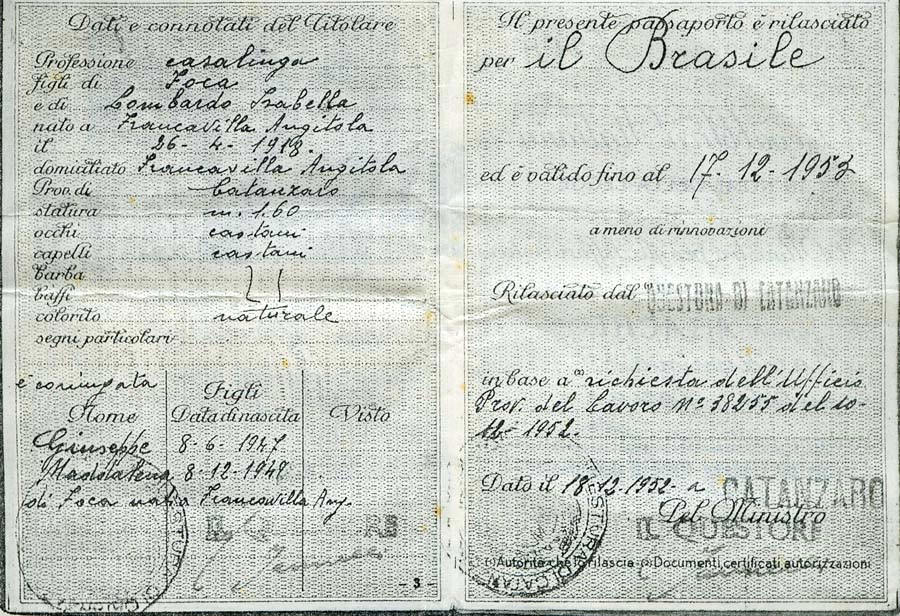 Dati e connotati del Titolare
Professione casalinga
figli di Foca
e di Lombardo Isabella
nato a Francavilla Angitola
il 26 - 4 - 1918.
domiciliato Francavilla Angitola
Prov. di Catanzaro
statura m. 1.60
occhi castani
capelli castani
barba
baffi
colorito naturale
segni particolari
è coniugata
Figli
Nome Data di nascita Visto
Giuseppe 8 - 6 - 1947
Maddalena 8 - 12 - 1948
di Foca nata Francavilla Ang.
- 3 -
Il presente passaporto è rilasciato
per il Brasile
ed è valido fino al 17 - 12 - 1953
a meno di rinnovazioni
Rilasciato dal QUESTORE DI CATANZARO
in base a (2) richiesta dell'Ufficio
Prov. del Lavoro N° 38255 del 10-
12 - 1952.
Dato il 18-12-1952 - a CATANZARO
Pel Ministro
IL QUESTORE
(1) Autorità che lo rilascia - (2) Documenti, certificati, autorizzazioni